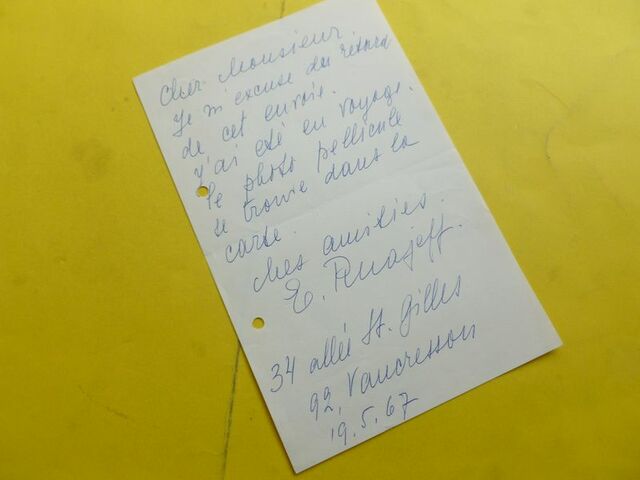 Cher Monsieur,
Je m'excuse du retard
de cet envoie.
J'ai été en voyage.
le photo pellicule
se trouve dans la
carte.
Mes amitiés.
E.
34 allée St. Gilles
92, Vaucresson
19.5.67